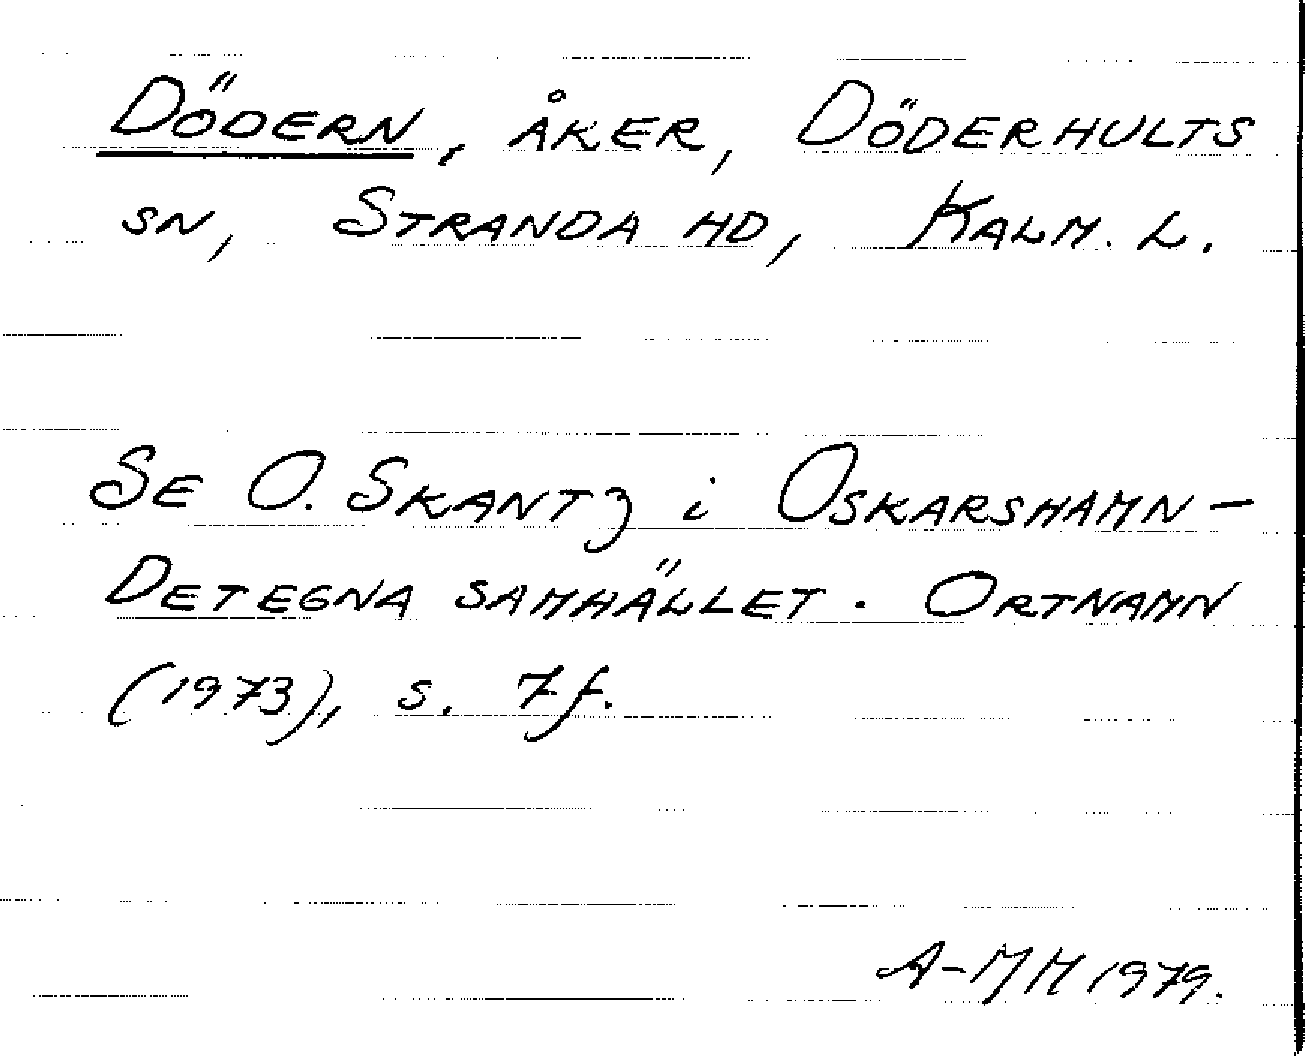 DÖDERN, ÅKER, DÖDERHULTS
SN, STRANDA HD, KALM. L.
SE O. SKANTZ i OSKARSHAMN –
DET EGNA SAMHÄLLET. ORTNAMN
(1973), S. 7 f.
A-MH 1979.